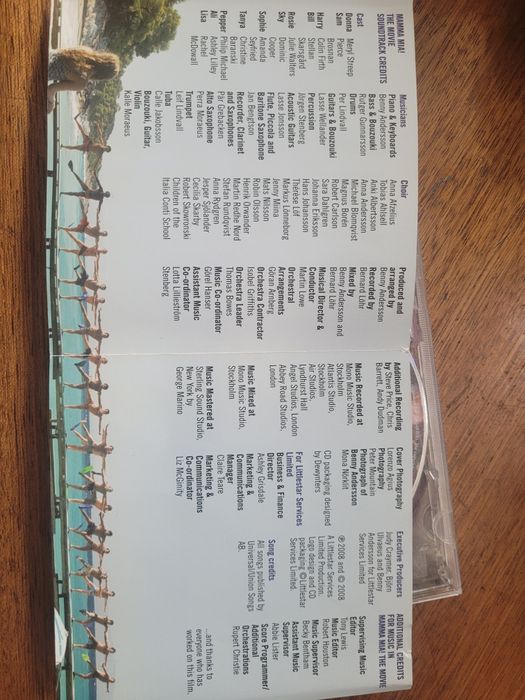 MAMMA MIA!
THE MOVIE
SOUNDTRACK CREDITS
Cast
Donna Meryl Streep
Sam Pierce
Brosnan
Harry Colin Firth
Bill Stellan
Skarsgård
Rosie Julie Walters
Sky Dominic
Cooper
Sophie Amanda
Seyfried
Tanya Christine
Baranski
Pepper Philip Michael
Ali Ashley Lilley
Lisa Rachel
McDowall
Musicians
Piano & Keyboards
Benny Andersson
Bass & Bouzouki
Rutger Gunnarsson
Drums
Per Lindvall
Guitars & Bouzouki
Lasse Wellander
Percussion
Jörgen Stenberg
Acoustic Guitars
Lasse Jonsson
Flute, Piccolo and
Baritone Saxophone
Jan Bengtson
Recorder, Clarinet
and Saxophones
Pär Grebacken
Alto Saxophone
Perra Moraeus
Trumpet
Leif Lindvall
Tuba
Calle Jakobsson
Bouzouki, Guitar,
Violin
Kalle Moraeus
Choir
Anna Afzelius
Tobias Ahlsell
Anki Albertsson
Anna Andersson
Michael Blomqvist
Magnus Borén
Robert Carlson
Sara Dahlgren
Johanna Eriksson
Hans Johansson
Therese Löf
Markus Lönneborg
Jenny Minna
Mats Nilsson
Robin Olsson
Henrik Orwander
Martin Redhe Nord
Stefan Rundqvist
Anna Rydgren
Jesper Sjölander
Cecilia Skarby
Robert Skowronski
Children of the
Italia Conti School
Produced and
arranged by
Benny Andersson
Recorded by
Bernard Löhr
Mixed by
Benny Andersson and
Bernard Löhr
Musical Director &
Conductor
Martin Lowe
Orchestral
Arrangements
Göran Arnberg
Orchestra Contractor
Isobel Griffiths
Orchestra Leader
Thomas Bowes
Music Co-ordinator
Görel Hanser
Assistant Music
Co-ordinator
Lotta Lilliestrom
Stenberg
Additional Recording
by Steve Price, Chris
Barrett, Andy Dudman
Music Recorded at
Mono Music Studio,
Stockholm
Atlantis Studio,
Stockholm
Air Studios,
Lyndhurst Hall
Angel Studios, London
Abbey Road Studios,
London
Music Mixed at
Mono Music Studio,
Stockholm
Music Mastered at
Sterling Sound Studio,
New York by
George Marino
Cover Photography
Lorenzo Agius
Photography
Peter Mountain
Photograph of
Benny Andersson
Mona Nörklit
CD packaging designed
by Dewynters
For Littlestar Services
Limited
Business & Finance
Director
Ashley Grisdale
Marketing &
Communications
Manager
Claire Teare
Marketing &
Communications
Co-ordinator
Liz McGinity
Executive Producers
Judy Craymer, Björn
Ulvaeus and Benny
Andersson for Littlestar
Services Limited
℗ 2008 and © 2008
A Littlestar Services
Limited Production.
Logo design and CD
packaging © Littlestar
Services Limited.
Song credits
All songs published by
Universal/Union Songs
AB.
ADDITIONAL CREDITS
FOR MUSIC IN
MAMMA MIA! THE MOVIE
Supervising Music
Editor
Tony Lewis
Music Editor
Robert Houston
Music Supervisor
Becky Bentham
Assistant Music
Supervisor
Abbie Lister
Score Programmer/
Additional
Orchestrations
Rupert Christie
...and thanks to
everyone who has
worked on this film.